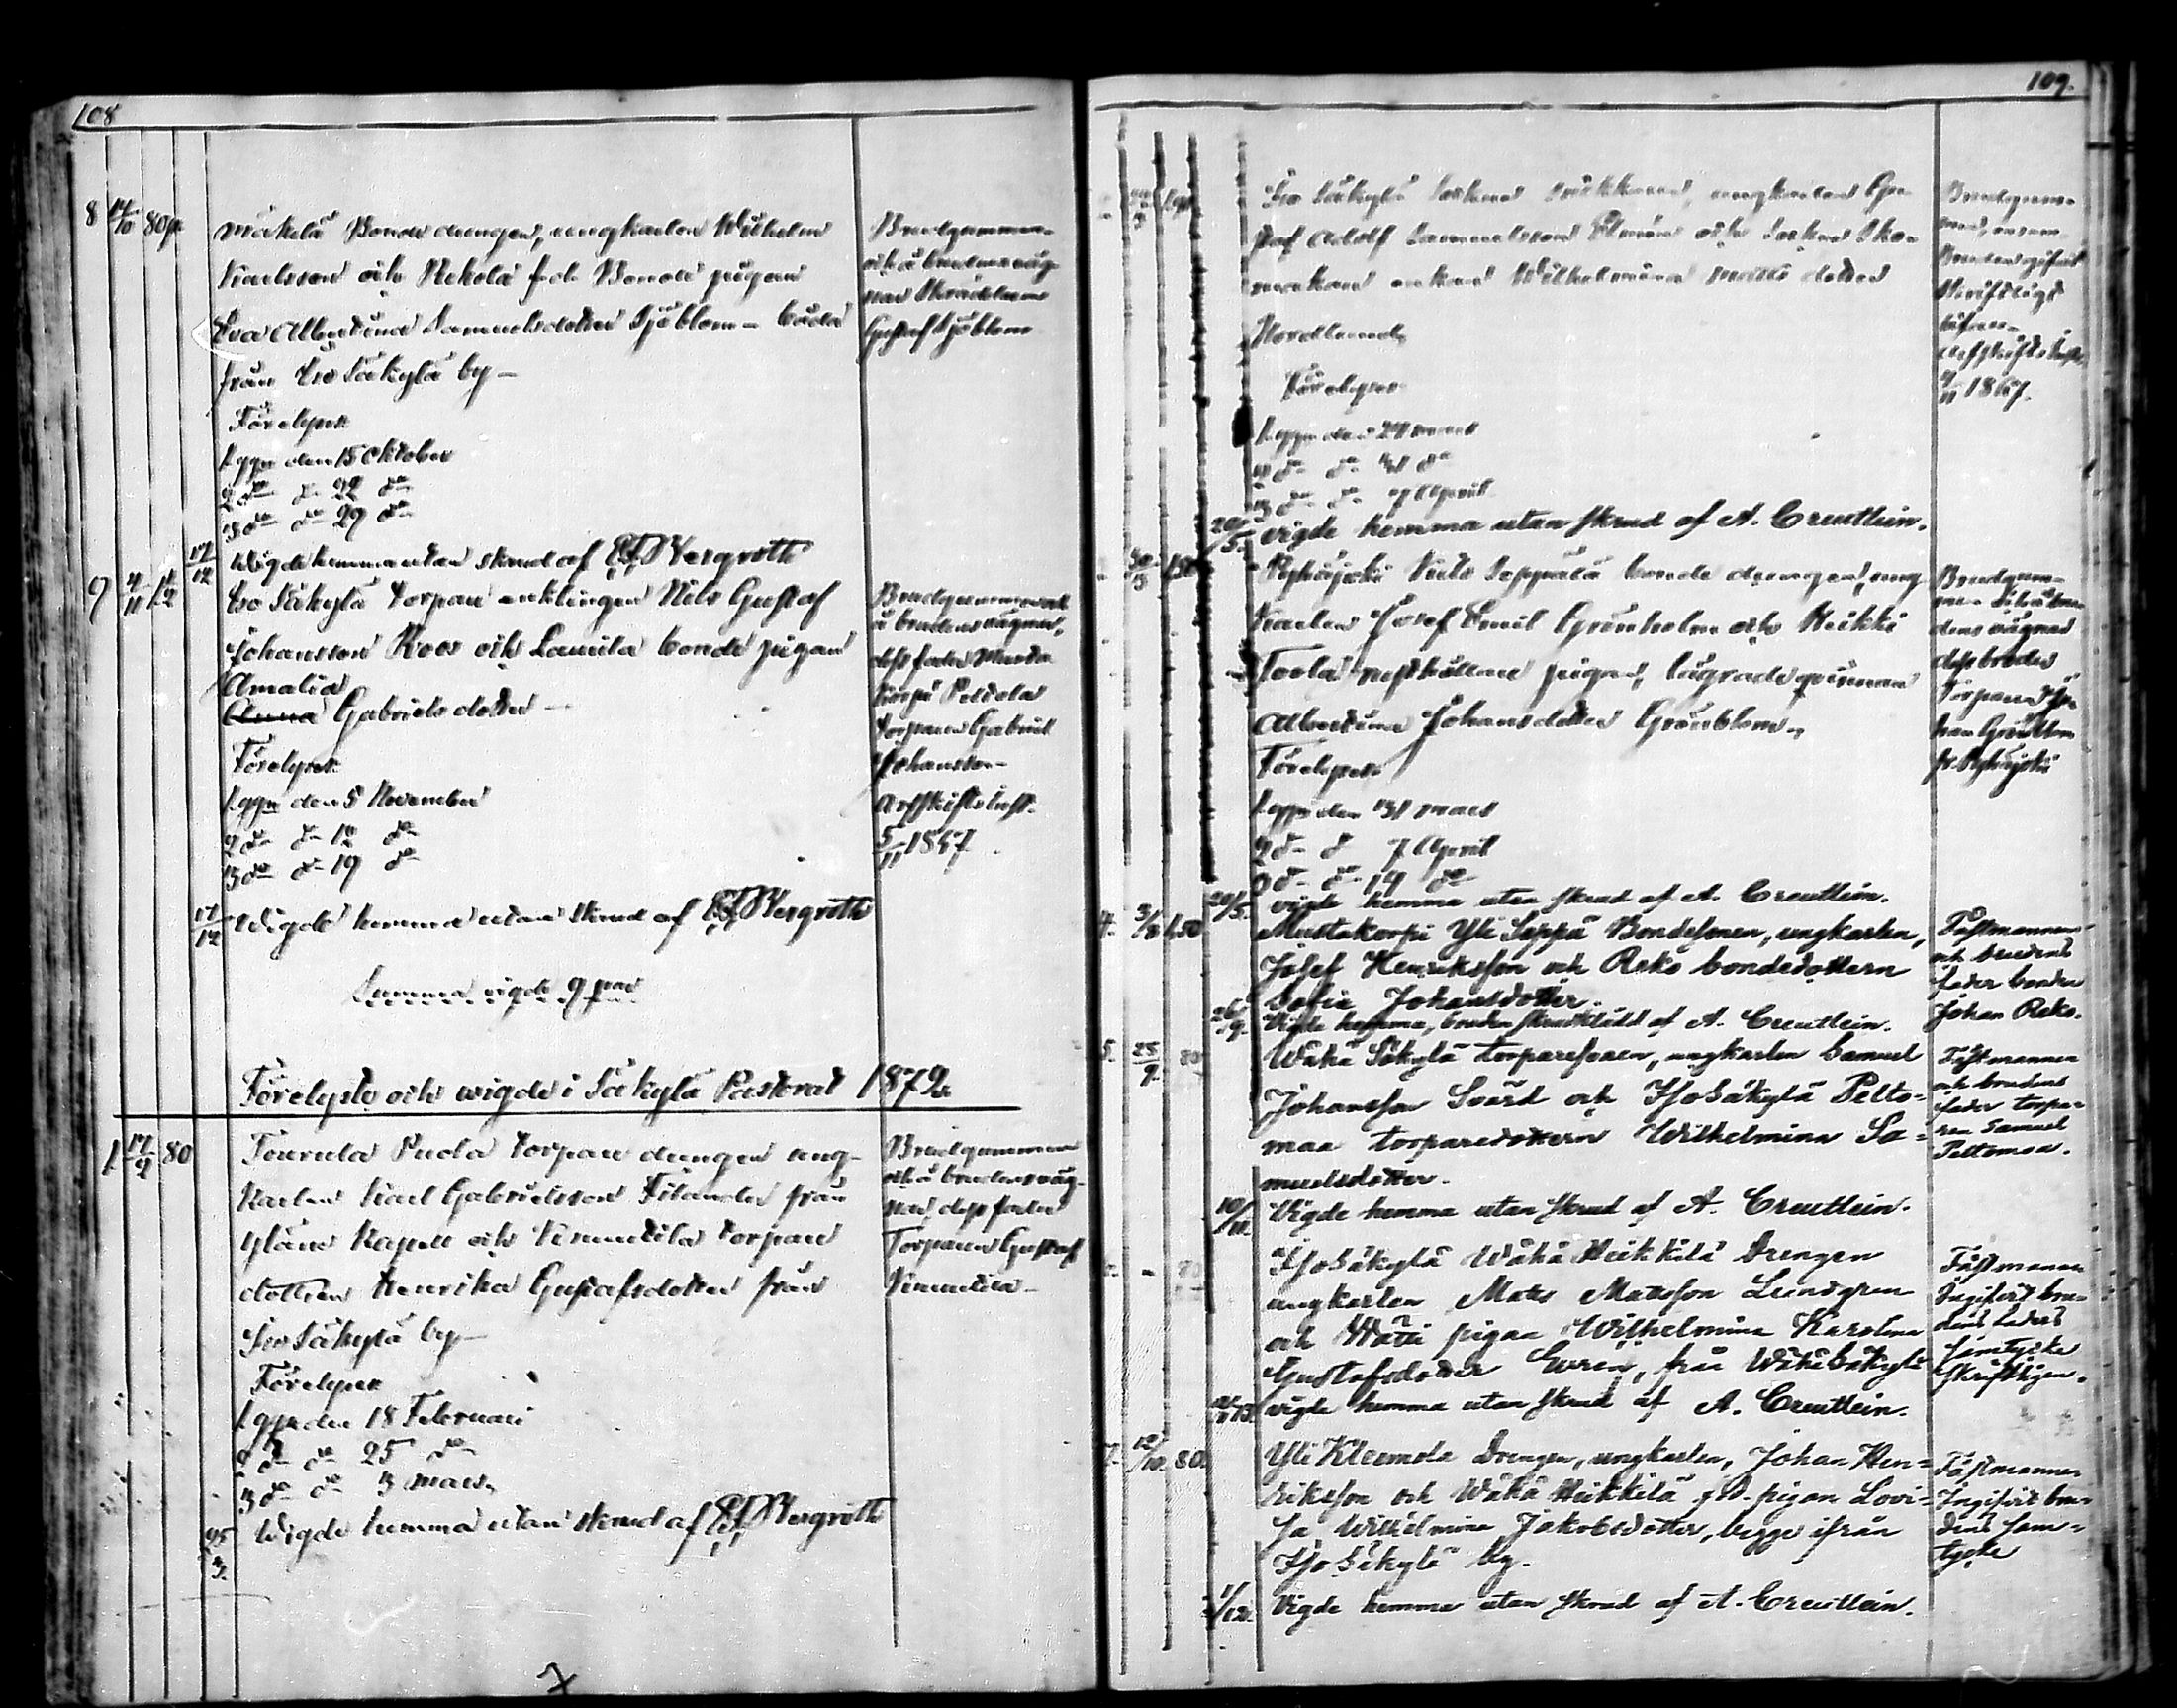 108
8 14/10 80 p. Mäkelä Bonde drengen, ungkarlen Wilhelm
Karlsson och Rekola f.d. Bonde pigan
Eva Albertina Samuelsdotter Sjöblom - båda
från Iso Säkylä by -
Förelyses
1 ggn den 15 October
2 do do 22 do
3 do do 29 do
17/12 Wigde hemma utan skrud af Bergroth
Brudgummen
och å brudens väg-
nar Skräddaren
Gustaf Sjöblom
9 4/11 Iso Säkylä torpare enklingen Nils Gustaf
Johansson Roos och Lamila bonde pigan
Amalia
Anna Gabrielsdotter -
Förelyses
1 ggn den 5 November
2 do do 12 do
3 do do 19 do
17/12 Wigde hemma utan skrud af Bergroth
Brudgummen och
å brudens vägnar,
dess fader
Peltola
torparen Gabriel
Johansson -
Arfskifts inst.
5/11 1867
Summa vigde 9 par
Förelyste och wigde i Säkylä Pastorat 1872.
1 17/2 80 Tourula Puola torpare drengen ung-
karlen Karl Gabrielsson Filander från
Yläne Kapell och Vinnikila torpare
dottren Henrika Gustafsdotter från
Iso Säkylä by -
Förelyses
1 ggn den 18 Februari
2 do do 25 do
3 do do 3 mars,
25/3 Wigde hemma utan skrud af Bergroth
Brudgummen
och å brudens väg-
nar, dess fader
Torparen Gustaf
109.
Iso Säkylä Socken ungkarlen Gu-
staf Adolf Sammelsson och Socken Sko-
makare enkan Wilhelmina Matts dotter
Nordlund,
Förelyses
1 ggn den 24 mars
2 do do 31 do
3 do do 7 April
20/5. vigde hemma utan skrud af A. Creutlein.
Brudgum-
men, ensam
Bruden gifvit
Skriftligt
Arfskifts inst.
1867.
30/3 1,50 Pyhäjoki Nulo Seppälä bonde drengen, ung
Karlen Josef Emil Grönholm och Heikki
Toola pigan, lägrade qvinnan
Albertina Johansdotter Grönblom,
Förelyses
1 ggn den 31 mars
2 do d 7 April
3 do do 14 do
20/5. vigde hemma utan skrud af A. Creutlein.
Brudgum-
men och å bru-
dens vägnar
dess broder
Torparen Jo-
han Grönblom
fr. Pyhäjoki
4. 3/8 1,50 Mustakorpi Yli Seppä Bondesonen, ungkarlen,
Josef Henriksson och Reko bondedottern
Sofia Johansdotter.
26/9. Vigde hemma, bruden skrudklädd af A. Creutlein.
Fästmannen
och brudens
fader bonden
Johan Reko.
5. 25/9. 80 Wähä Säkylä torparesonen, ungkarlen Samuel
Johansson Svärd och Iso Säkylä Pelto-
maa torparedottern Wilhelmina Sa-
muelsdotter.
10/11. Vigde hemma utan skrud af A. Creutlein.
Fästmannen
och brudens
fader torpa-
ren Samuel
Peltomaa.
- 80 Iso Säkylä Wähä Heikkilä Drengen
ungkarlen Mats Mattsson Lundgren
och Matti pigan Wilhelmina Karolina
Gustafsdotter Gvren, från Wähä Säkylä
vigde hemma utan skrud af A. Creutlein.
Fästmannen
Ingifvit bru-
dens faders
samtycke
skriftligen.
7. 12/10. 80. Yli Kleemola Drengen, ungkarlen, Johan Hen-
riksson och Wähä Heikkilä f.d. pigan Lovi-
sa Wilhelmina Jakobsdotter, begge ifrån
Iso Säkylä by.
1/12. Vigde hemma utan skrud af A. Creutlein.
Fästmannen
Ingifvit bru-
dens sam-
tycke